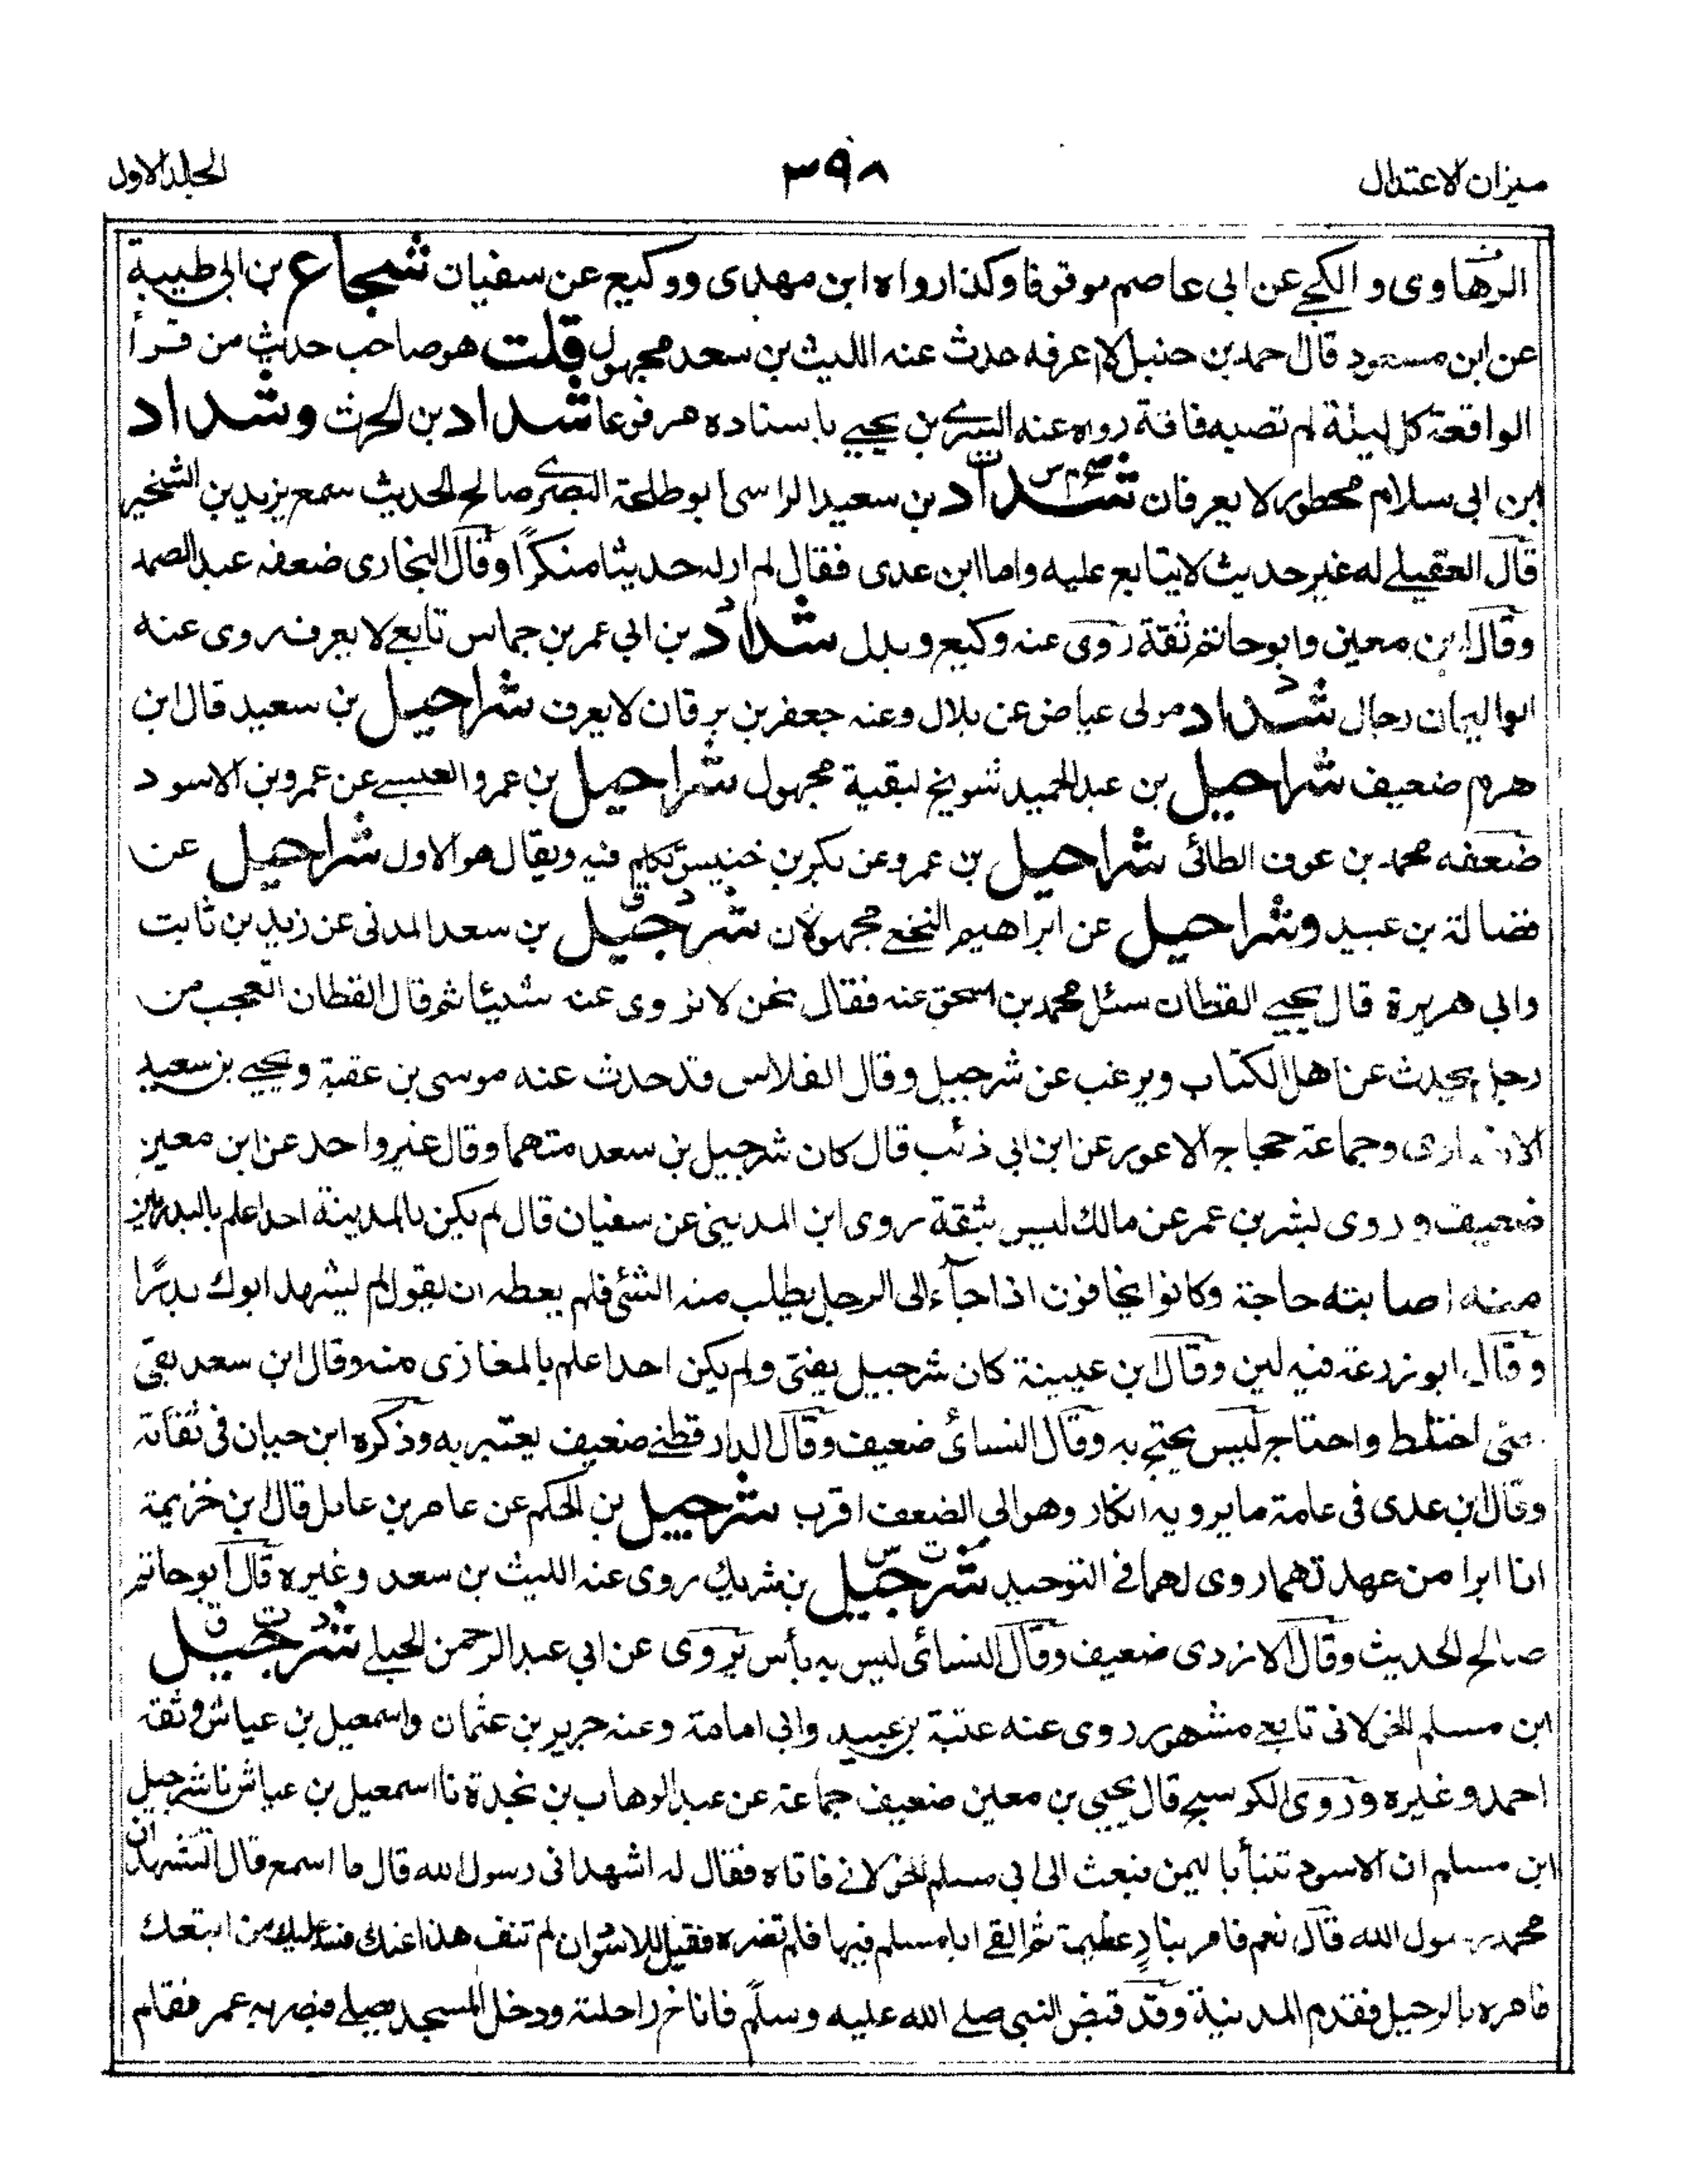 ميزان الاعتدال ٣٩٨ الجلد الاول
الرهاوى و الكجى عن ابى عاصم موقوفا وكذا رواه ابن مهدى ووكيع عن سفيان شجاع بن ابى طيبة
عن ابن مسعود قال حمد بن حنبل لا اعرفه حدث عنه الليث بن سعد مجهول قلت هو صاحب حديث من قرأ
الواقعة كل ليلة لم تصبه فاقة رواه عنه السرى بن يحيى باسناده مرفوعا شداد بن الحرث وشداد
ابن ابى سلام ممطور لا يعرفان شداد بن سعيد الراسى ابو طلحة البصرى صالح الحديث سمع يزيد بن الشخير
قال العقيلى له غير حديث لا يتابع عليه واما ابن عدى فقال لم ار له حديثا منكرًا وقال البخارى ضعفه عبد الصمد
وقال ابن معين وابو حاتم ثقة روى عنه وكيع وبدل شداد بن ابى عمر بن حماس تابعى لا يعرف روى عنه
ابو اليمان رحال شداد مولى عياض عن بلال وعنه جعفر بن برقان لا يعرف شراحيل بن سعيد قال ابن
هرم ضعيف شراحيل بن عبد الحميد شويخ لبقية مجهول شراحيل بن عمرو العبسى عن عمرو بن الاسود
ضعفه محمد بن عوف الطائى شراحيل بن عمرو عن بكر بن خنيس تكلم فيه ويقال هو الاول شراحيل عن
فضالة بن عبيد وشراحيل عن ابراهيم النخعى مجهولان شرحبيل بن سعد المدنى عن زيد بن ثابت
وابى هريرة قال يحيى القطان سئل محمد بن اسحق عنه فقال نحن لا نروى عنه شيئا ثم قال القطان العجب من
رجل يحدث عن اهل الكتاب ويرغب عن شرحبيل وقال الفلاس قد حدث عنه موسى بن عقبة ويحيى بن سعيد
الانصارى وجماعة حجاج الاعور عن ابن ابى ذئب قال كان شرحبيل بن سعد متهما وقال غير واحد عن ابن معين
ضعيف وروى بشر بن عمر عن مالك ليس بثقة روى ابن المدينى عن سفيان قال لم يكن بالمدينة احد اعلم بالبدريين
منه اصابته حاجة وكانوا يخافون اذا جآء الى الرجل يطلب منه الشئ فلم يعطه ان يقول لم يشهد ابوك بدرًا
وقال ابو زرعة فيه لين وقال ابن عيينة كان شرحبيل يفتى ولم يكن احد اعلم بالمغازى منه وقال ابن سعد بقى
حتى اختلط واحتاج ليس يحتج به وقال النسائى ضعيف وقال الدارقطنى ضعيف يعتبر به وذكره ابن حبان فى ثقاته
وقال ابن عدى فى عامة ما يرويه انكار وهو الى الضعف اقرب شرحبيل بن الحكم عن عامر بن نايل قال ابن خزيمة
انا ابرا من عهدتهما روى لهما فى التوحيد شرحبيل بن شريك روى عنه الليث بن سعد وغيره قال ابو حاتم
صالح الحديث وقال الازدى ضعيف وقال النسائى ليس به بأس يروى عن ابى عبد الرحمن الحبلى شرحبيل
ابن مسلم الخولانى تابعى مشهور روى عنه عتبة بن عبيد وابى امامة وعنه حريز بن عثمان واسمعيل بن عياش وثقه
احمد وغيره وروى الكوسج قال يحيى بن معين ضعيف جماعة عن عبد الوهاب بن نجدة نا اسمعيل بن عياش نا شرحبيل
ابن مسلم ان الاسود تنبأ باليمن فبعث الى ابى مسلم الخولانى فاتاه فقال له اشهد انى رسول الله قال ما اسمع قال اتشهد ان
محمد رسول الله قال نعم فامر بنارٍ عظيمة ثم القى ابا مسلم فيها فلم تضره فقيل للاسود ان لم تنف هذا عنك فسد عليك من اتبعك
فامره بالرحيل فقدم المدينة وقد قبض النبى صلى الله عليه وسلم فاناخ راحلته ودخل المسجد يصلى فبصر به عمر فقام